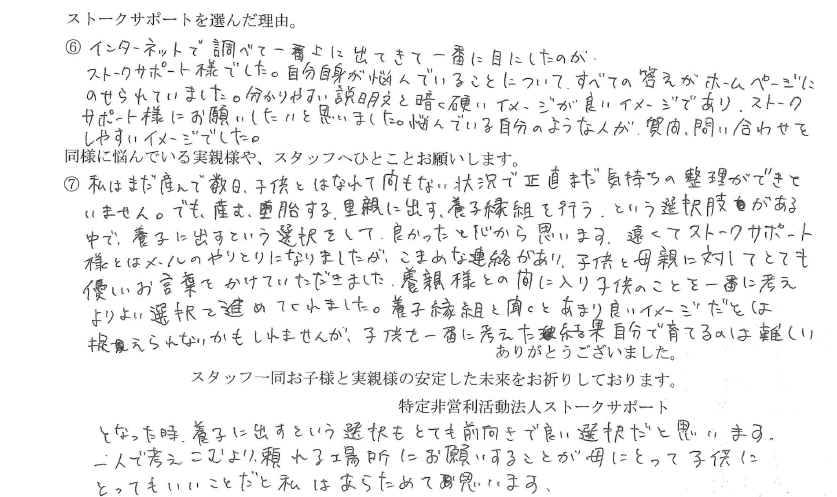 ストークサポートを選んだ理由。
⑥ インターネットで調べて一番上に出てきて一番に目にしたのが、
ストークサポート様でした。自分自身が悩んでいることについて、すべての答えがホームページに
のせられていました。分かりやすい説明文と暗く硬いイメージが良いイメージであり、ストーク
サポート様にお願いしたいと思いました。悩んでいる自分のような人が、質問、問い合わせを
しやすいイメージでした。
同様に悩んでいる実親様や、スタッフへひとことお願いします。
⑦ 私はまだ産んで数日、子供とはなれて間もない状況で正直まだ気持ちの整理ができて
いません。でも、産む、堕胎する、里親に出す、養子縁組を行う、という選択肢がある
中で、養子に出すという選択をして、良かったと心から思います。遠くてストークサポート
様とはメールのやりとりになりましたが、こまめな連絡があり、子供と母親に対してとても
優しいお言葉をかけていただきました。養親様との間に入り子供のことを一番に考え
よりよい選択で進めてくれました。養子縁組と聞くとあまり良いイメージだとは
捉えられないかもしれませんが、子供を一番に考えた結果自分で育てるのは難しい
ありがとうございました。
スタッフ一同お子様と実親様の安定した未来をお祈りしております。
特定非営利活動法人ストークサポート
となった時、養子に出すという選択もとても前向きで良い選択だと思います。
一人で考えこむより、頼れる場所にお願いすることが母にとって子供に
とってもいいことだと私はあらためて思います。